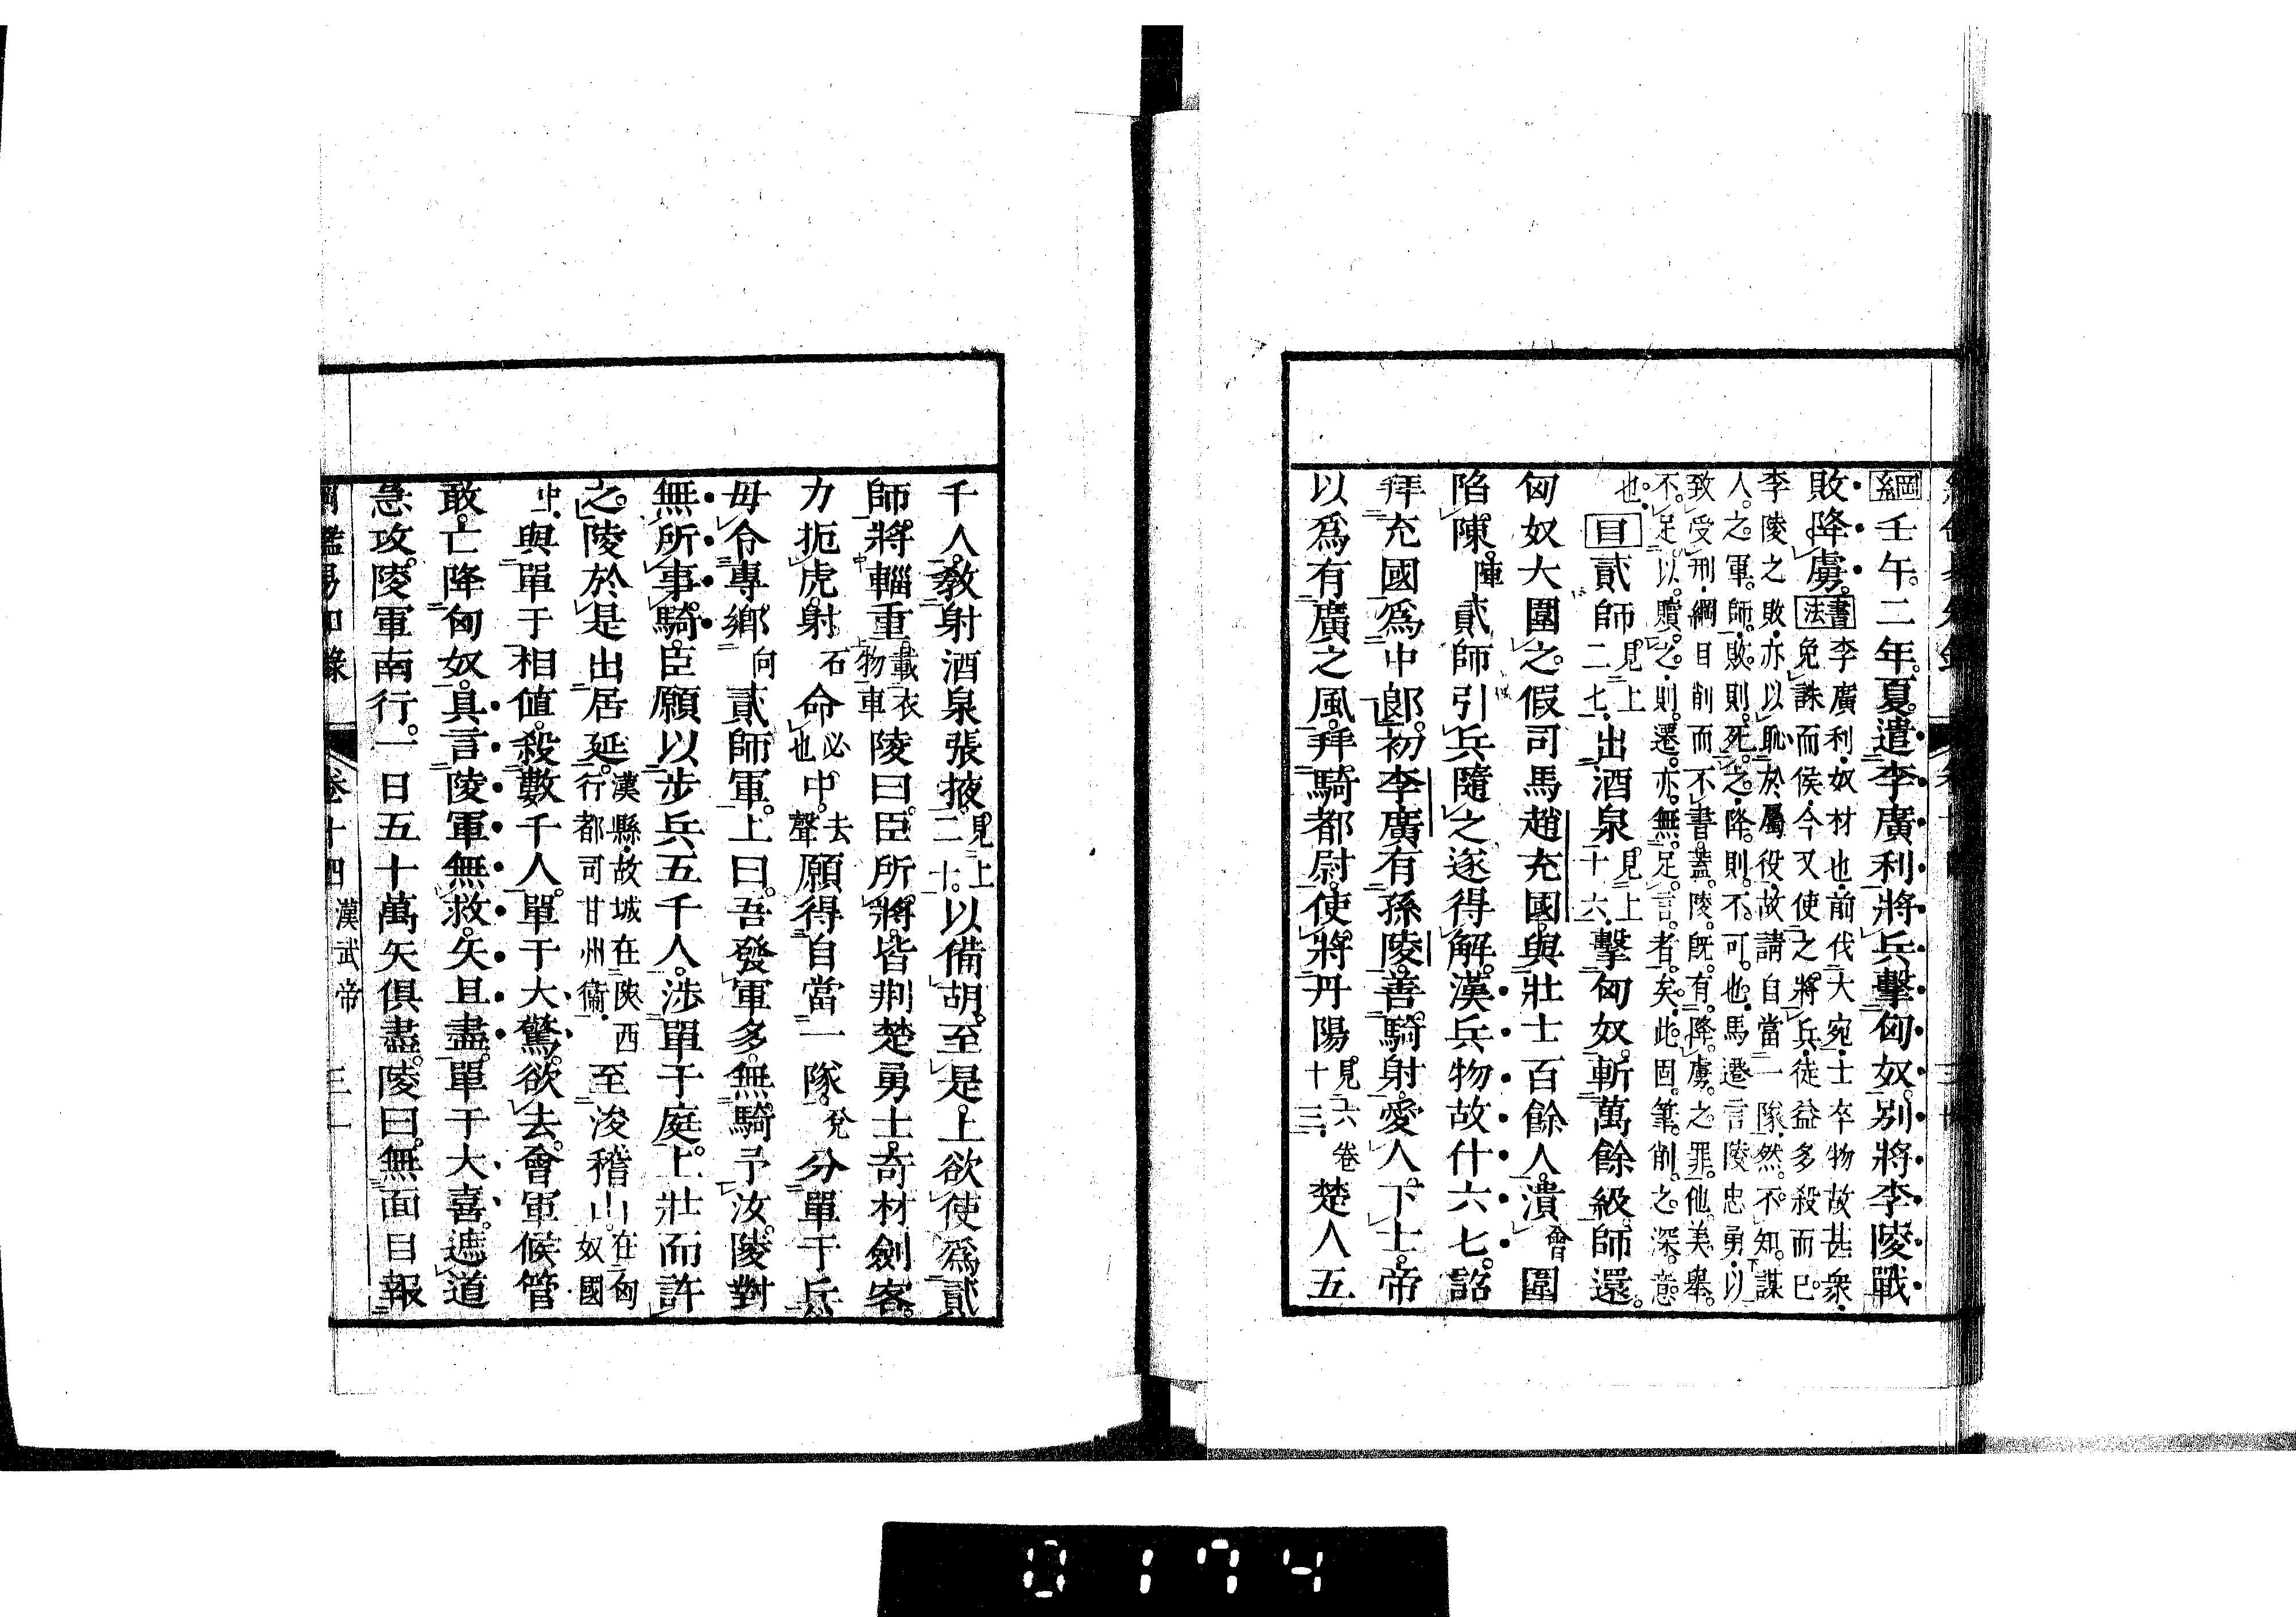 綱壬午。二年。夏。遣李廣利將兵擊匈奴。別將李陵戰
敗降虜。書法李廣利奴材也前伐大宛士卒物故甚衆
免誅而侯今又使之將兵徒益多殺而已
李陵之敗亦以恥於屬役故請自當一隊然不知謀
人之軍師敗則死之降則不可也馬遷言陵忠勇以
致受刑綱目削而不書蓋陵既有降虜之罪他美舉
不足以贖之則遷亦無足言者矣此固筆削之深意
也。目貳師見上二七出酒泉見上十六擊匈奴。斬萬餘級。師還。
匈奴大圍之。假司馬趙充國與壯士百餘人。潰會圍
陷陳。陣貳師引兵隨之。遂得解。漢兵物故什六七。詔
拜充國爲中郎。初李廣有孫陵。善騎射。愛人下士。帝
以爲有廣之風。拜騎都尉。使將丹陽見六卷十三楚人五
千人。教射酒泉張掖見上二十以備胡。至是。上欲使爲貳
師。將輜重載衣物車陵曰。臣所將。皆荆楚勇士。奇材劍客。
力扼虎。射石命必也中。去聲願得自當一隊。兌分單于兵
毋令專鄉向貳師軍。上曰。吾發軍多。無騎予汝。陵對
無所事騎。臣願以步兵五千人。涉單于庭。上壯而許
之。陵於是出居延。漢縣故城在陝西行都司甘州衞至浚稽山。在匈奴國
中與單于相値。殺數千人。單于大驚。欲去。會軍候管
敢。亡降匈奴。具言陵軍無救。矢且盡。單于大喜。遮道
急攻。陵軍南行。一日五十萬矢俱盡。陵曰。無面目報
綱鑑易知錄 卷十四 漢武帝 三一